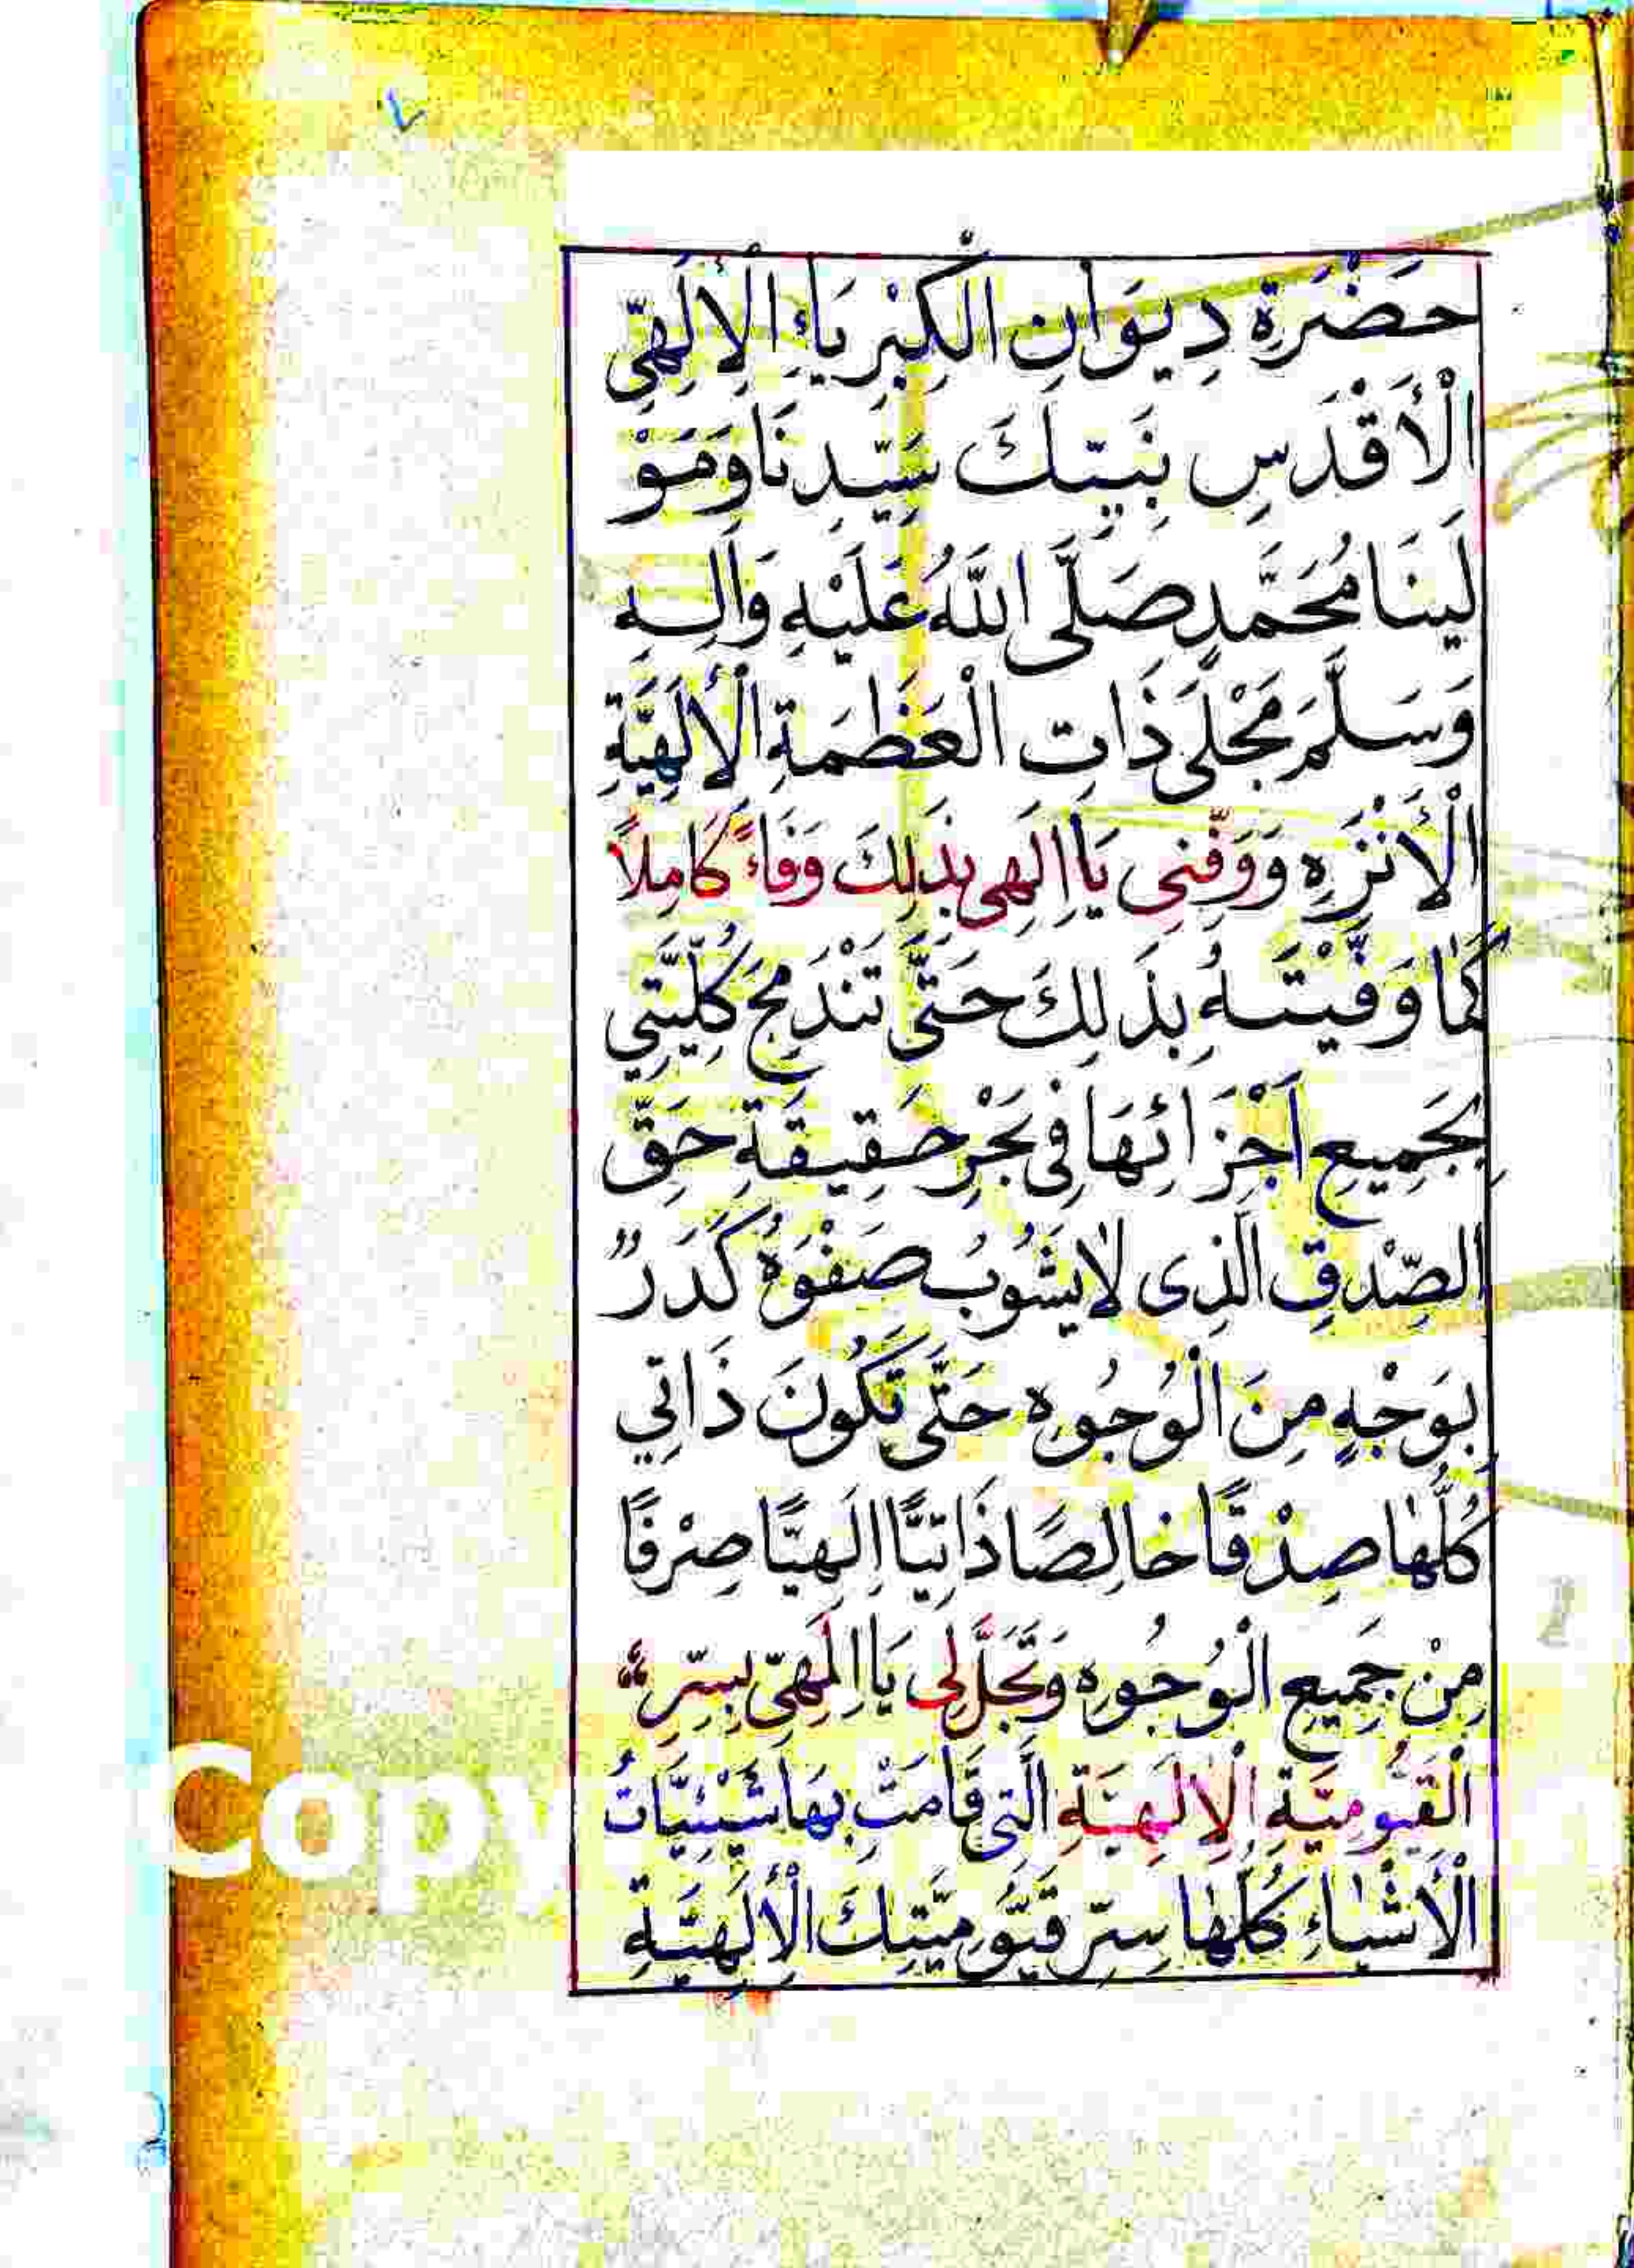 حَضْرَةِ دِيوَانِ الْكِبْرِيَاءِ الْإِلٰهِيِّ
الْأَقْدَسِ بِنَبِيِّكَ سَيِّدِنَا وَمَوْ
لَينَا مُحَمَّدٍ صَلَّى اللَّهُ عَلَيْهِ وَاٰلِهِ
وَسَلَّمَ مَجْلَى ذَاتِ الْعَظَمَةِ الْأِلٰهِيَّةِ
الْأَنْزَهِ وَوَفِّنِى يَا اِلٰهِى بِذَلِكَ وَفَاءً كَامِلًا
كَمَا وَفَّيْتَهُ بِذَلِكَ حَتَّى تَنْدَمِجَ كُلِّيَّتِي
بِجَمِيعِ اَجْزَائِهَا فِى بَحْرِ حَقِيقَةِ حَقِّ
الصِّدْقِ الَّذِى لَا يَشُوبُ صَفْوَهُ كَدَرٌ
بِوَجْهٍ مِنَ الْوُجُوهِ حَتَّى تَكُونَ ذَاتِي
كُلُّهَا صِدْقًا خَالِصًا ذَاتِيًّا اِلٰهِيًّا صِرْفًا
مِنْ جَمِيعِ الْوُجُوهِ وَتَجَلَّ لِى يَا اِلٰهِى بِسِرِّ
الْقَيُّومِيَّةِ الْإِلٰهِيَّةِ الَّتِى قَامَتْ بِهَا شَيْئِيَّاتُ
الْأَشْيَاءِ كُلُّهَا سِرِّ قَيُّومِيَّتِكَ الْأِلٰهِيَّةِ
Copy